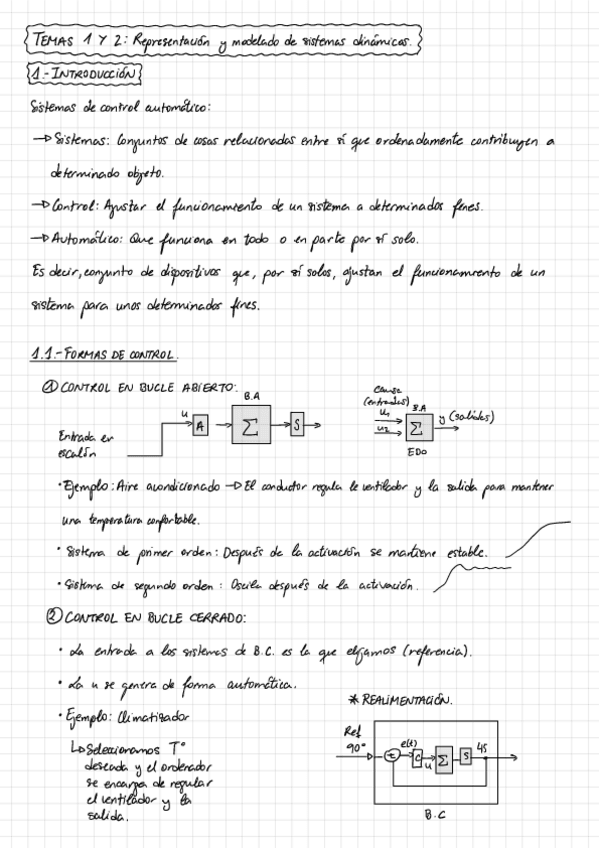 TEMAS 1 Y 2: Representación y modelado de sistemas dinámicos.
1.- INTRODUCCIÓN
Sistemas de control automático:
→ Sistemas: Conjuntos de cosas relacionadas entre sí que ordenadamente contribuyen a
determinado objeto.
→ Control: Ajustar el funcionamiento de un sistema a determinados fines.
→ Automático: Que funciona en todo o en parte por sí solo.
Es decir, conjunto de dispositivos que, por sí solos, ajustan el funcionamiento de un
sistema para unos determinados fines.
1.1.- FORMAS DE CONTROL.
① CONTROL EN BUCLE ABIERTO:
B.A
u
A
Σ
S
Entrada en
escalón
Causa
(entradas)
u1
u2
B.A
Σ
y (salidas)
EDO
· Ejemplo: Aire acondicionado → El conductor regula le ventilador y la salida para mantener
una temperatura confortable.
· Sistema de primer orden: Después de la activación se mantiene estable.
· Sistema de segundo orden: Oscila después de la activación.
② CONTROL EN BUCLE CERRADO:
· La entrada a los sistemas de B.C. es la que elijamos (referencia).
· La u se genera de forma automática.
· Ejemplo: Climatizador
↳ Seleccionamos Tº
deseada y el ordenador
se encarga de regular
el ventilador y la
salida.
* REALIMENTACIÓN.
Ref
90°
e(t)
C
u
Σ
S
45
B.C